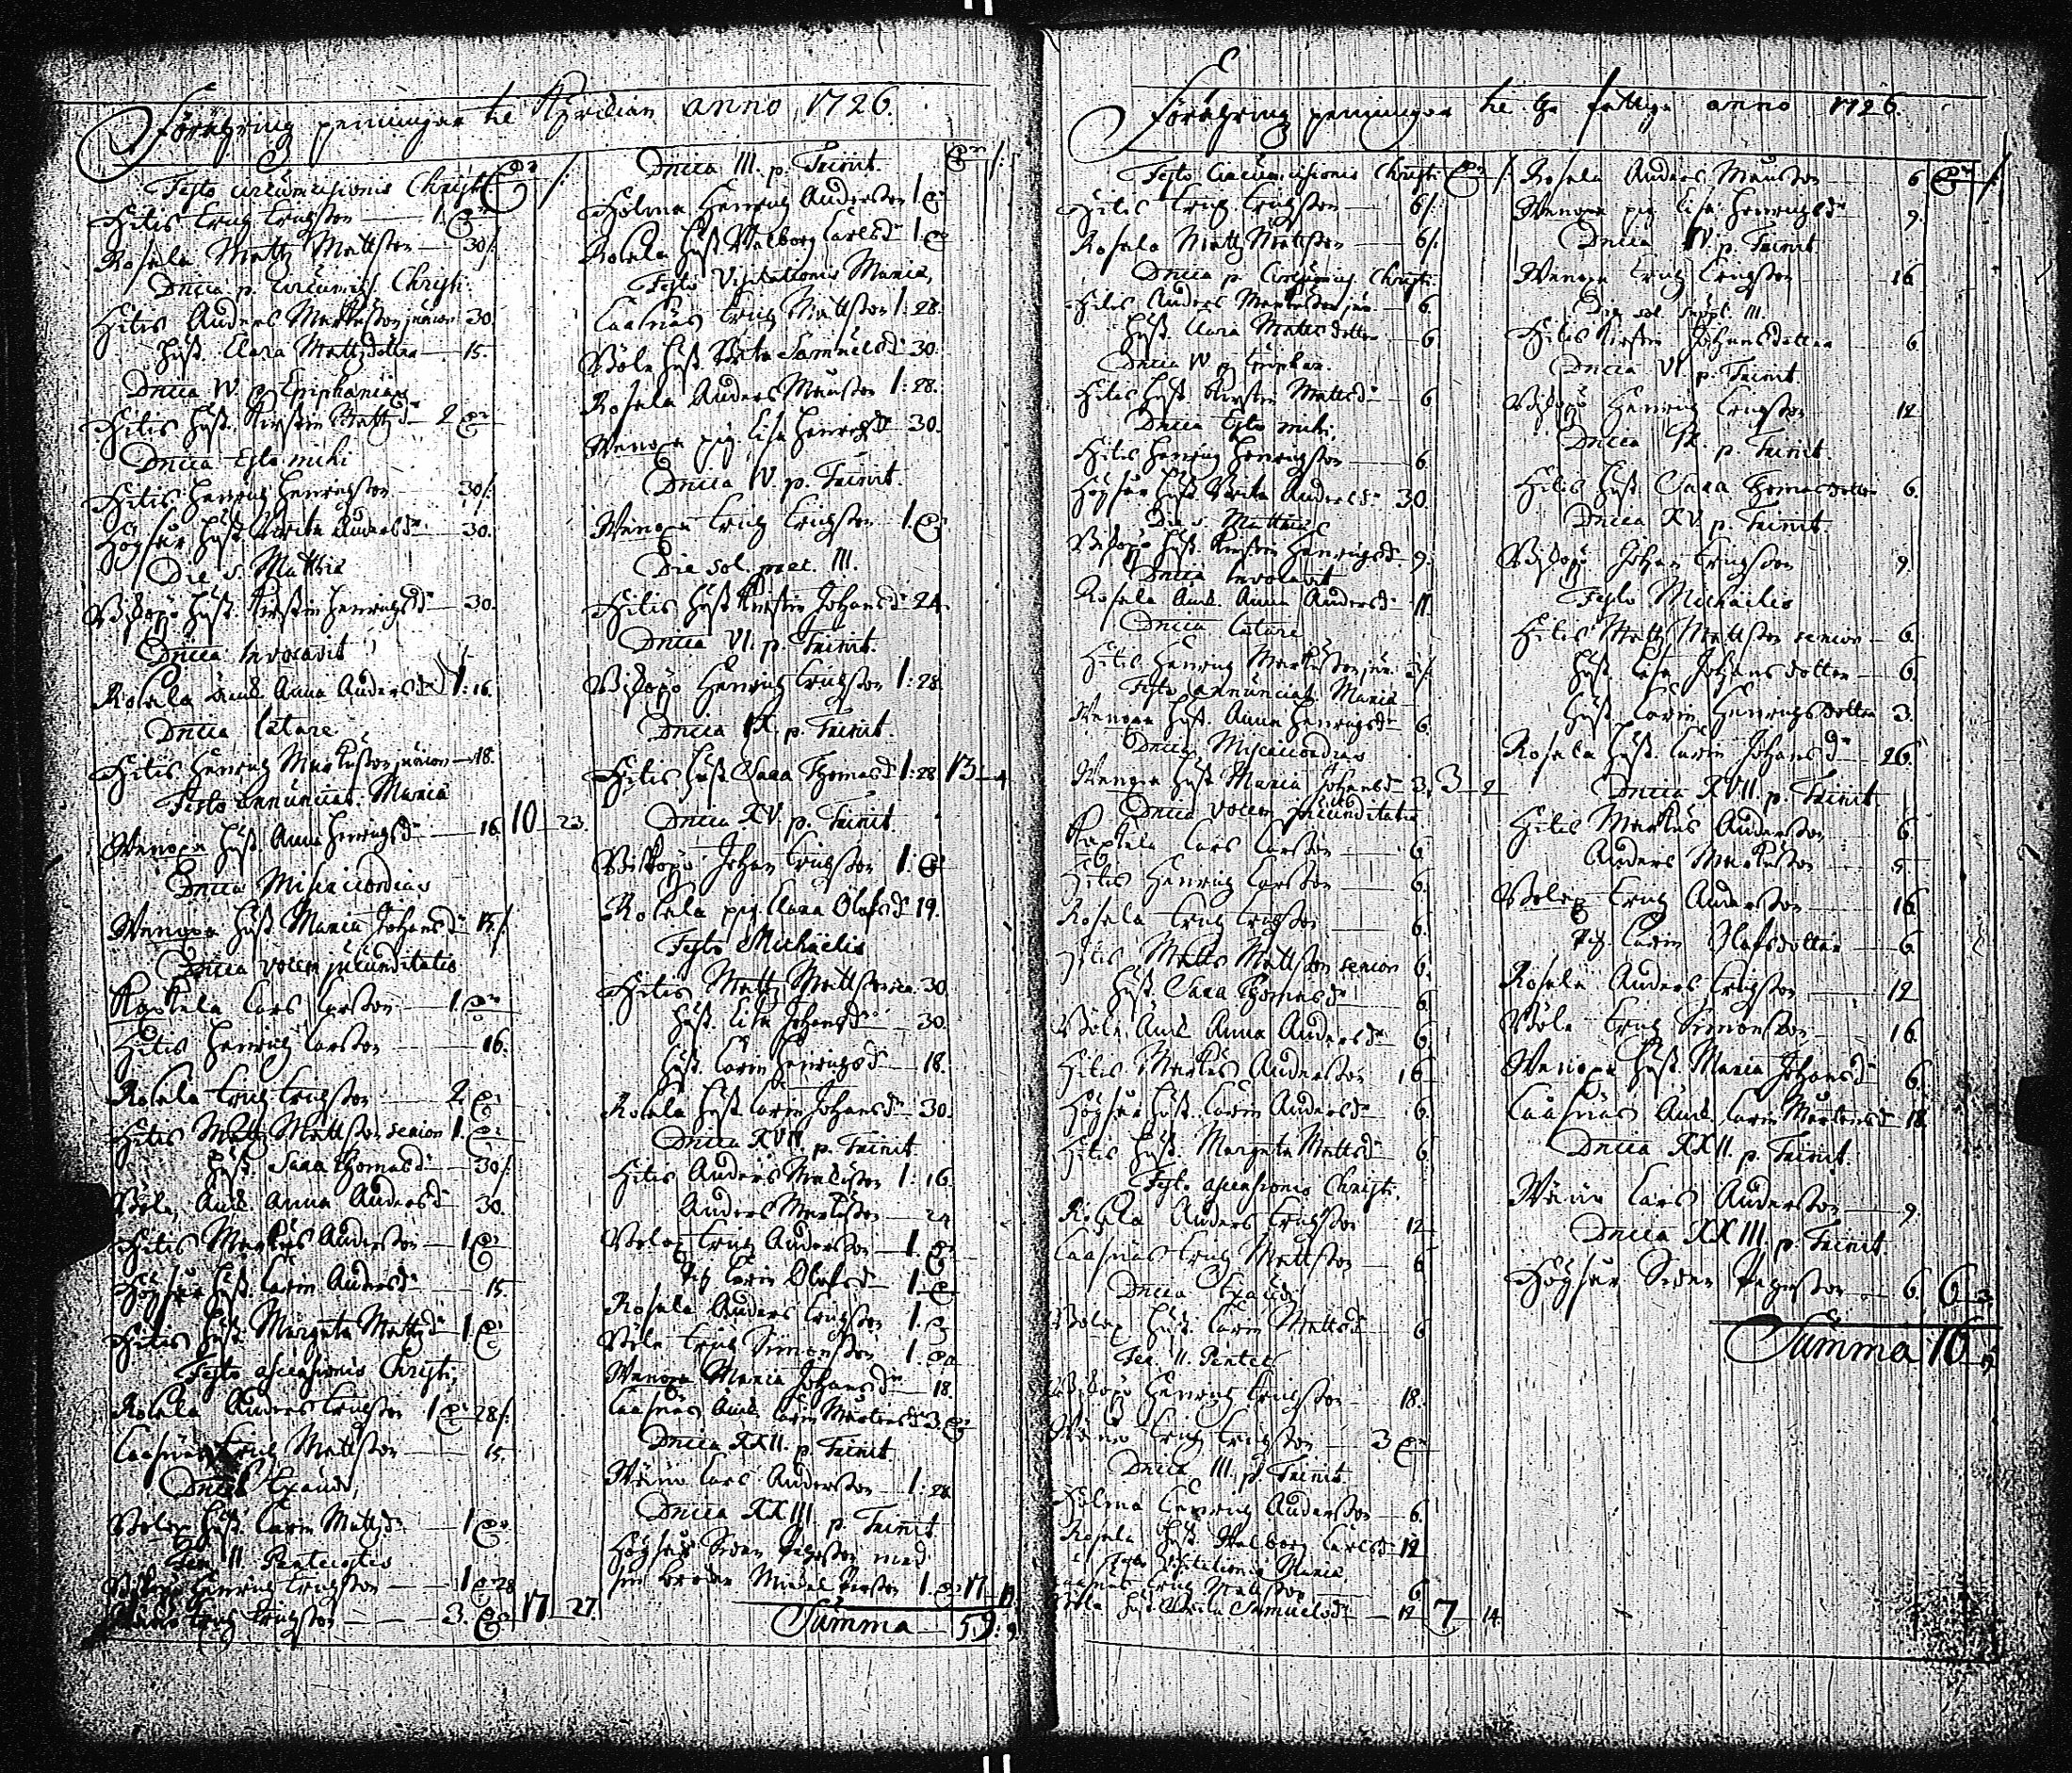 Föräring peningar til Kyrckian anno 1726.
Festo circumcisionis Christi
Hitis Erich Erichsson 1
Rosala Matz Mattsson 30
Dnica p. circumcis. Christi
Hitis Anders Markusson junior 30.
hust. Clara Mattzdotter 15.
Dnica IV p. Epiphanias
Hitis hust. Kirstin Mattzd. 2
Dnica Esto mihi
Hitis Henrich Henrichsson 30
Högsar hust. Brita Andersd. 30.
Die s. Matthiæ
Biskopö hust. Kirstin Henrichsd. 30.
Dnica Invocavit
Rosala Anna Andersd. 1:16.
Dnica Lætare
Hitis Henrich Markusson junior 18.
Festo annunciat. Mariæ
Wänoxa hust. Anna Henrichsd. 16. 10 23.
Dnica Misericordias
Wänoxa hust. Maria Johansd. 15
Dnica vocem jucunditatis
Lars Larsson 1.
Hitis Henrich Larsson 16.
Rosala Erich Erichsson 2
Hitis Matz Mattsson senior 1.
hust. Sara Thomasd. 30
Böle, Anna Andersd. 30.
Hitis Markus Andersson 1
Högsar hust. Carin Andersd. 15.
Hitis hust. Margeta Mattzd. 1
Festo ascensionis Christi
Rosala Anders Erichsson 1 28
Erich Mattsson 15.
Dnica Exaudi
hust. Carin Mattzd. 1
Fer. II Pentecostes
Biskopö Henrich Erichsson 1 28
Erich Erichsson 3. 17 27.
Dnica III. p. Trinit.
Holma Henrich Andersson 1.
Rosala hust. Walborg Carlsd. 1.
Festo Visitationis Mariæ
Erich Mattsson 1:28.
Böle hust. Brita Samuelsd. 30.
Rosala Anders Månsson 1:28.
Wänoxa pig. Lisa Henrichsd. 30.
Dnica IV. p. Trinit.
Wänoxa Erich Erichsson 1.
Die sol. prec. III.
Hitis hust. Kirstin Johansd. 24.
Dnica VI. p. Trinit.
Biskopö Henrich Erichsson 1:28.
Dnica IX. p. Trinit.
Hitis hust. Sara Thomasd. 1:28 13 4
Dnica XV p. Trinit.
Biskopö Johan Erichsson 1.
Rosala pig. Clara Olofsd. 19.
Festo Michaëlis
Hitis Mattz Mattsson 30
hust. Lisa Johansd. 30.
hust. Carin Henrichsd. 18.
Rosala hust. Carin Johansd. 30.
Dnica XVII p. Trinit
Hitis Anders Markusson 1:16.
Anders Markusson 24
Erich Andersson 1.
Carin Olofsd. 1.
Rosala Anders Erichsson 1.
Böle Erich Simonsson 1.
Wänoxa Maria Johansd. 18.
Carin Mårtensd. 3.
Dnica XXII. p. Trinit
Lars Andersson 1:28
Dnica XXIII. p. Trinit
Högsar med
sin broder 1. 17
Summa 59:9
Föräring peningar til the fattiga anno 1726.
Festo Circumcisionis Christi
Hitis Erich Erichsson 6
Rosala Mattz Mattsson 6
Dnica p. Circumcis Christi
Hitis Anders Markusson jun. 6.
hust. Clara Mattsdotter 6
Dnica IV p. Epiphan.
Hitis hust. Kirstin Mattsd. 6
Dnica Esto mihi
Hitis Henrich Henrichsson 6.
Högsar hust. Brita Andersd. 30.
Die s. Matthiæ
Biskopö hust. Kirstin Henrichsd. 9.
Dnica Invocavit
Rosala Anna Andersd. 11.
Dnica Lætare
Hitis Henrich Markusson jun. 3
Festo annunciat. Mariæ
Wänoxa hust. Anna Henrichsd. 6.
Dnica Misericordias
Wänoxa hust. Maria Johansd. 3. 3 2
Dnica vocem jucunditatis
Lars Larsson 6.
Hitis Henrich Larsson 6.
Rosala Erich Erichsson 6.
Hitis Matts Mattsson senior 6.
hust. Sara Thomasd. 6
Böle Anna Andersd. 6.
Hitis Markus Andersson 16
Högsar hust. Carin Andersd. 6.
Hitis hust. Margeta Mattsd. 6.
Fest. ascensionis Christi.
Rosala Anders Erichsson 12
Erich Mattsson 6
Dnica Exaudi
hust. Carin Mattsd. 6
Fer. II. Pentec.
Biskopö Henrich Erichsson 18.
Erich Erichsson 3
Dnica III. p. Trinit
Holma Henrich Andersson 6.
Rosala hust. Walborg Carlsd. 12
Festo Visitationis Mariæ
Erich Mattsson 6
Böle hust. Brita Samuelsd. 12 7 14.
Rosala Anders Månsson 6
Wänoxa pig. Lisa Henrichsd. 9.
Dnica IV p. Trinit
Wänoxa Erich Erichsson 16
Die sol. suppl. III.
Hitis Kirstin Johansdotter 6
Dnica VI. p. Trinit.
Biskopö Henrich Erichsson 12.
Dnica IX. p. Trinit.
Hitis hust. Sara Thomasdotter 6.
Dnica XV p. Trinit.
Biskopö Johan Erichsson 9.
Festo Michaëlis
Hitis Mattz Mattsson senior 6.
hust. Lisa Johansdotter 6.
hust. Carin Henrichsdotter 3.
Rosala hust. Carin Johansd. 26.
Dnica XVII. p. Trinit
Hitis Markus Andersson 6
Anders Markusson
Erich Andersson 16
Carin Olofsdotter 6
Rosala Anders Erichsson 12
Böle Erich Simonsson 16.
Wänoxa hust. Maria Johansd. 6.
Carin Mårtensd. 18
Dnica XXII. p. Trinit.
Lars Andersson 9.
Dnica XXIII. p. Trinit
Högsar 6. 6 3
Summa 16